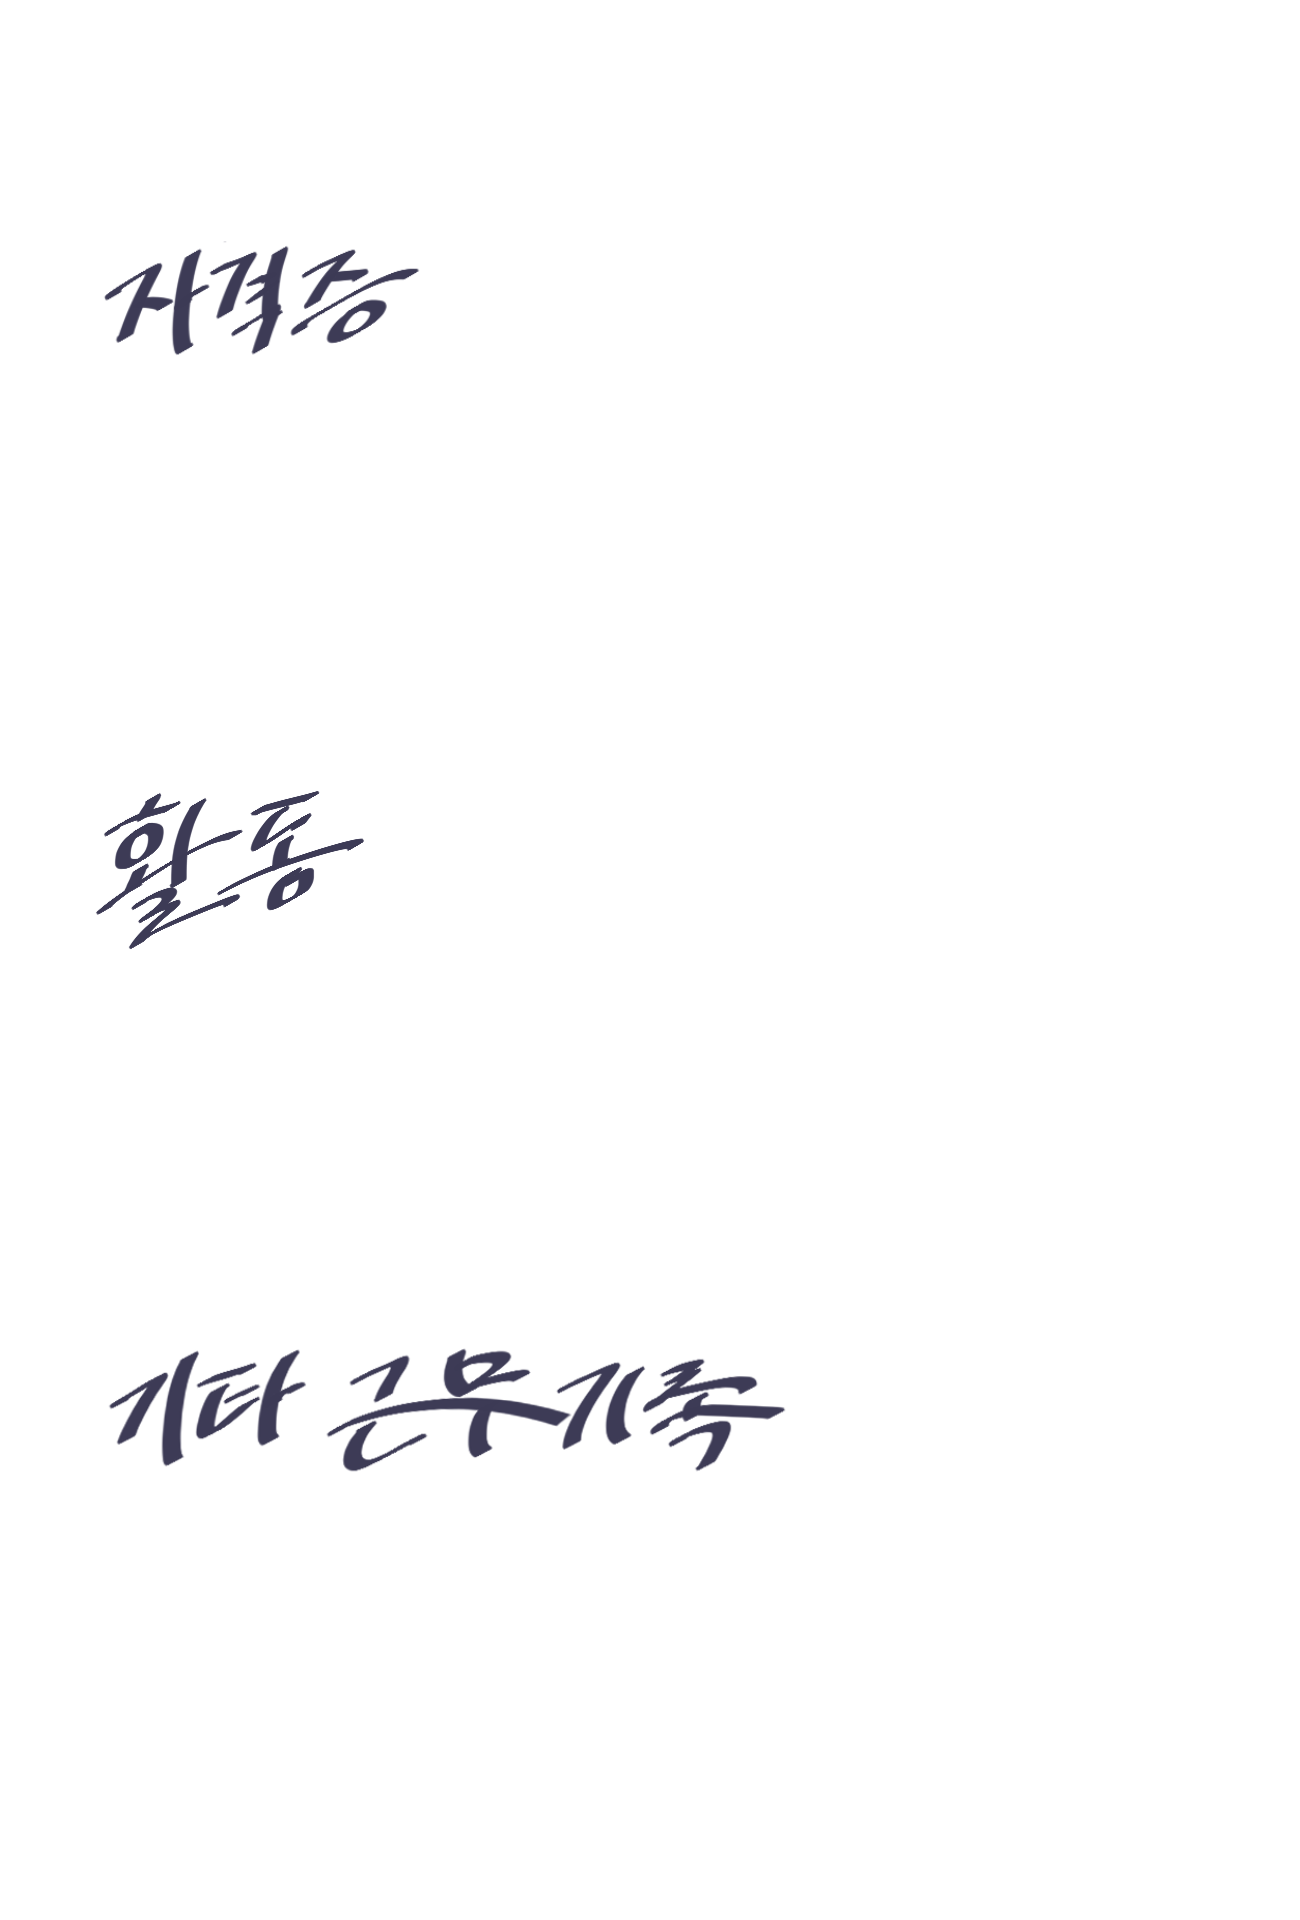 자격증
활동
기타 근무기록